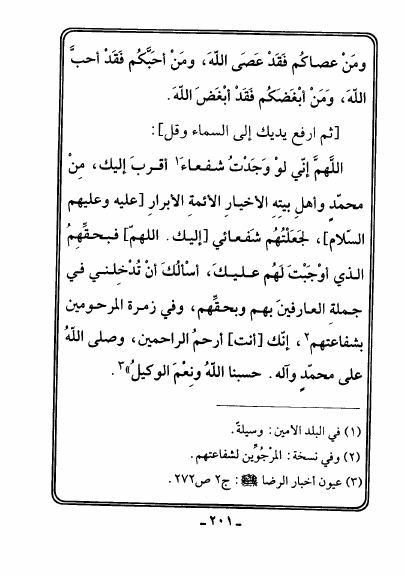 ومَنْ عصاكُم فَقَدْ عَصَى اللّهَ، ومَنْ أحَبَّكُم فَقَدْ أحبَّ
اللّهَ، وَمَنْ أَبْغَضَكُم فقَدْ أبْغَضَ اللّهَ.
[ثم ارفع يديك إلى السماء وقل]:
اللّهمَّ إنّي لوْ وَجَدْتُ شُـفـعـاءَ١ أقـربَ إليك، مِنْ
محمّدٍ وأهلِ بيتِهِ الأخيارِ الأئمةِ الأبرارِ [عليه وعليهم
السّلام]، لجَعَلْتُهُم شفَعائي [إليك. اللهمّ] فبـحـقّهمُ
الـذي أوْجَبْتَ لَهُم عـلـيـكَ، أسْألُكَ أنْ تُدْخِلـنـي فـي
جملةِ العارفينَ بهم وبحقِّهم، وفي زمرة المرحـومين
بشفاعتهم٢، إنّك [أنت] أرحمُ الراحمين، وصلى اللّهُ
على محمّدٍ وآله. حسبنا اللّهُ ونِعْمَ الوكيلُ»٣.
(١) في البلد الأمين: وسيلةً.
(٢) وفي نسخة: المرْجُوِّين لشفاعتهم.
(٣) عيون أخبار الرضا ﷺ: ج٢ ص٢٧٢.
ـ ٢٠١ ـ